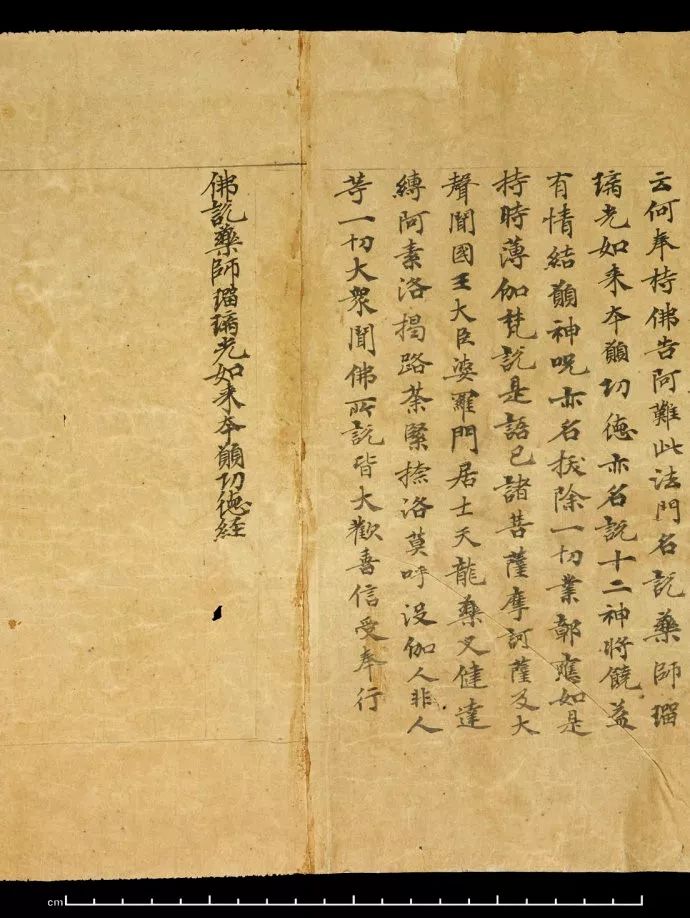 云何奉持佛告阿難此法門名說藥師瑠
璃光如来夲願功德亦名說十二神將饒益
有情結願神呪亦名拔除一切業鄣應如是
持時薄伽梵說是語已諸菩薩摩訶薩及大
聲聞國王大臣婆羅門居士天龍藥叉健達
縛阿素洛揭路荼緊捺洛莫呼洛伽人非人
等一切大衆聞佛所說皆大歡喜信受奉行
佛說藥師瑠璃光如来夲願功德經
cm